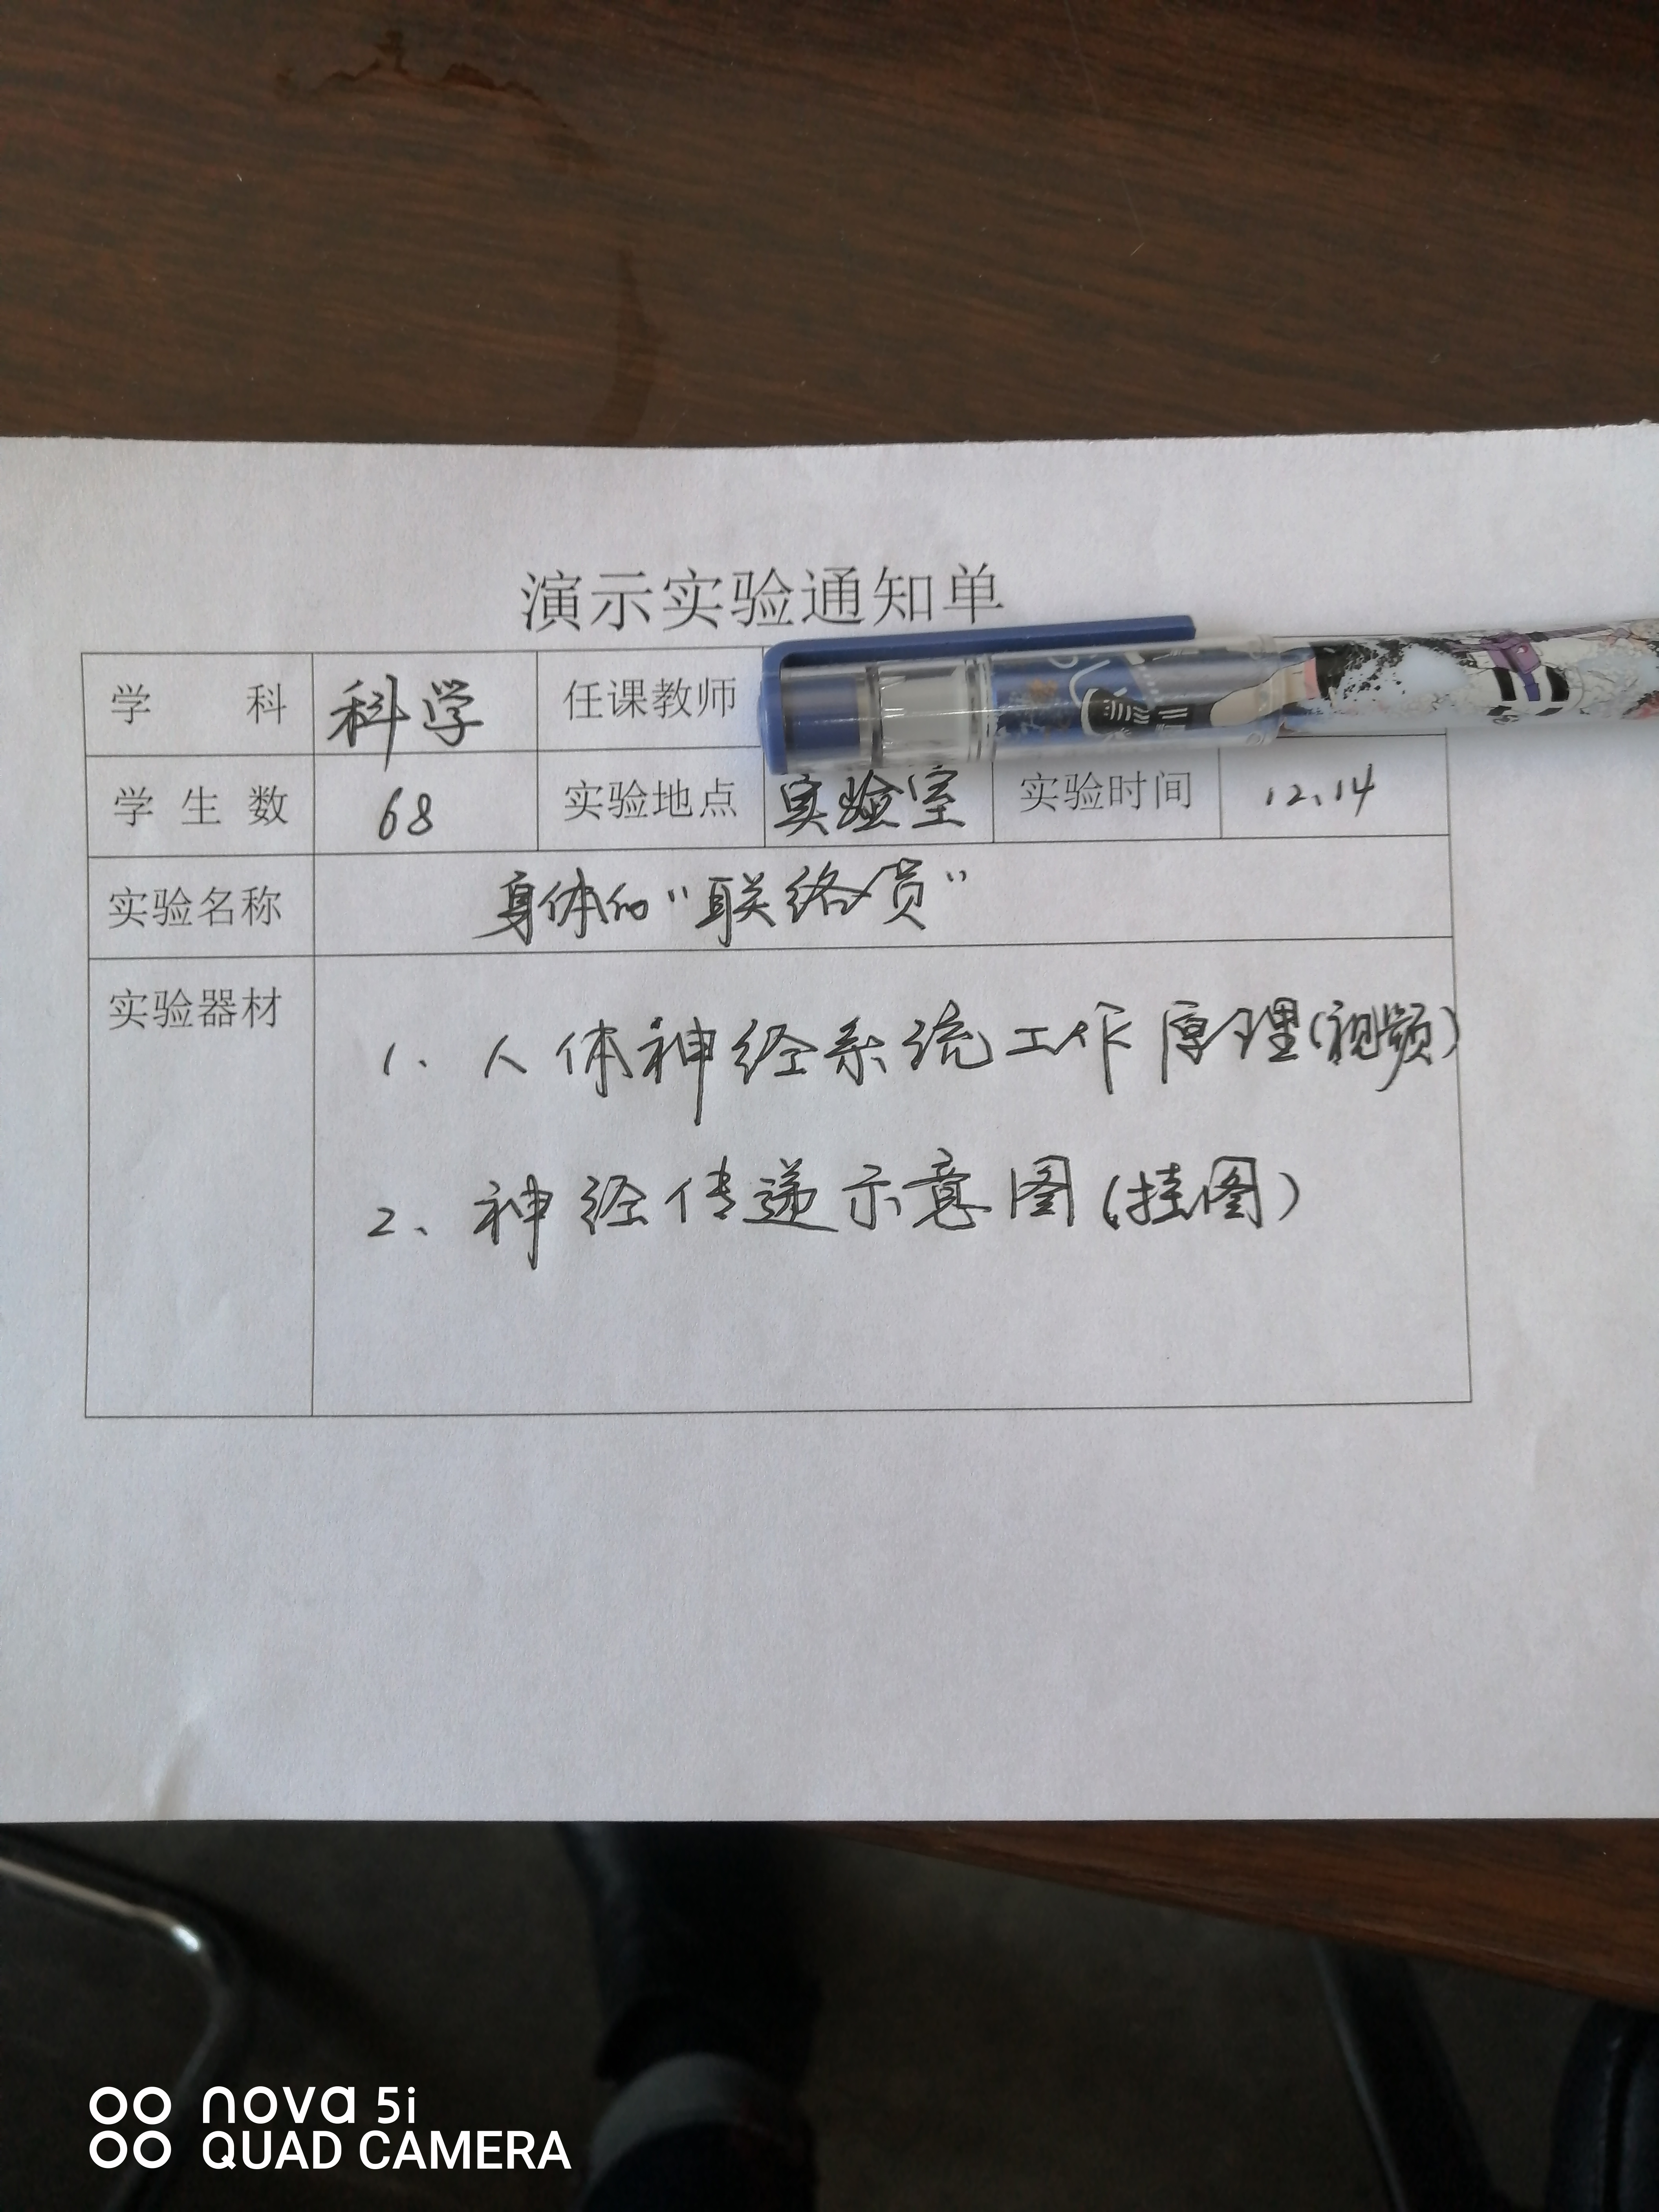 演示实验通知单
学 科 科学 任课教师
学生数 68 实验地点 实验室 实验时间 12、14
实验名称 身体的“联络员”
实验器材
1、人体神经系统工作原理(视频)
2、神经传递示意图(挂图)
nova 5i
QUAD CAMERA